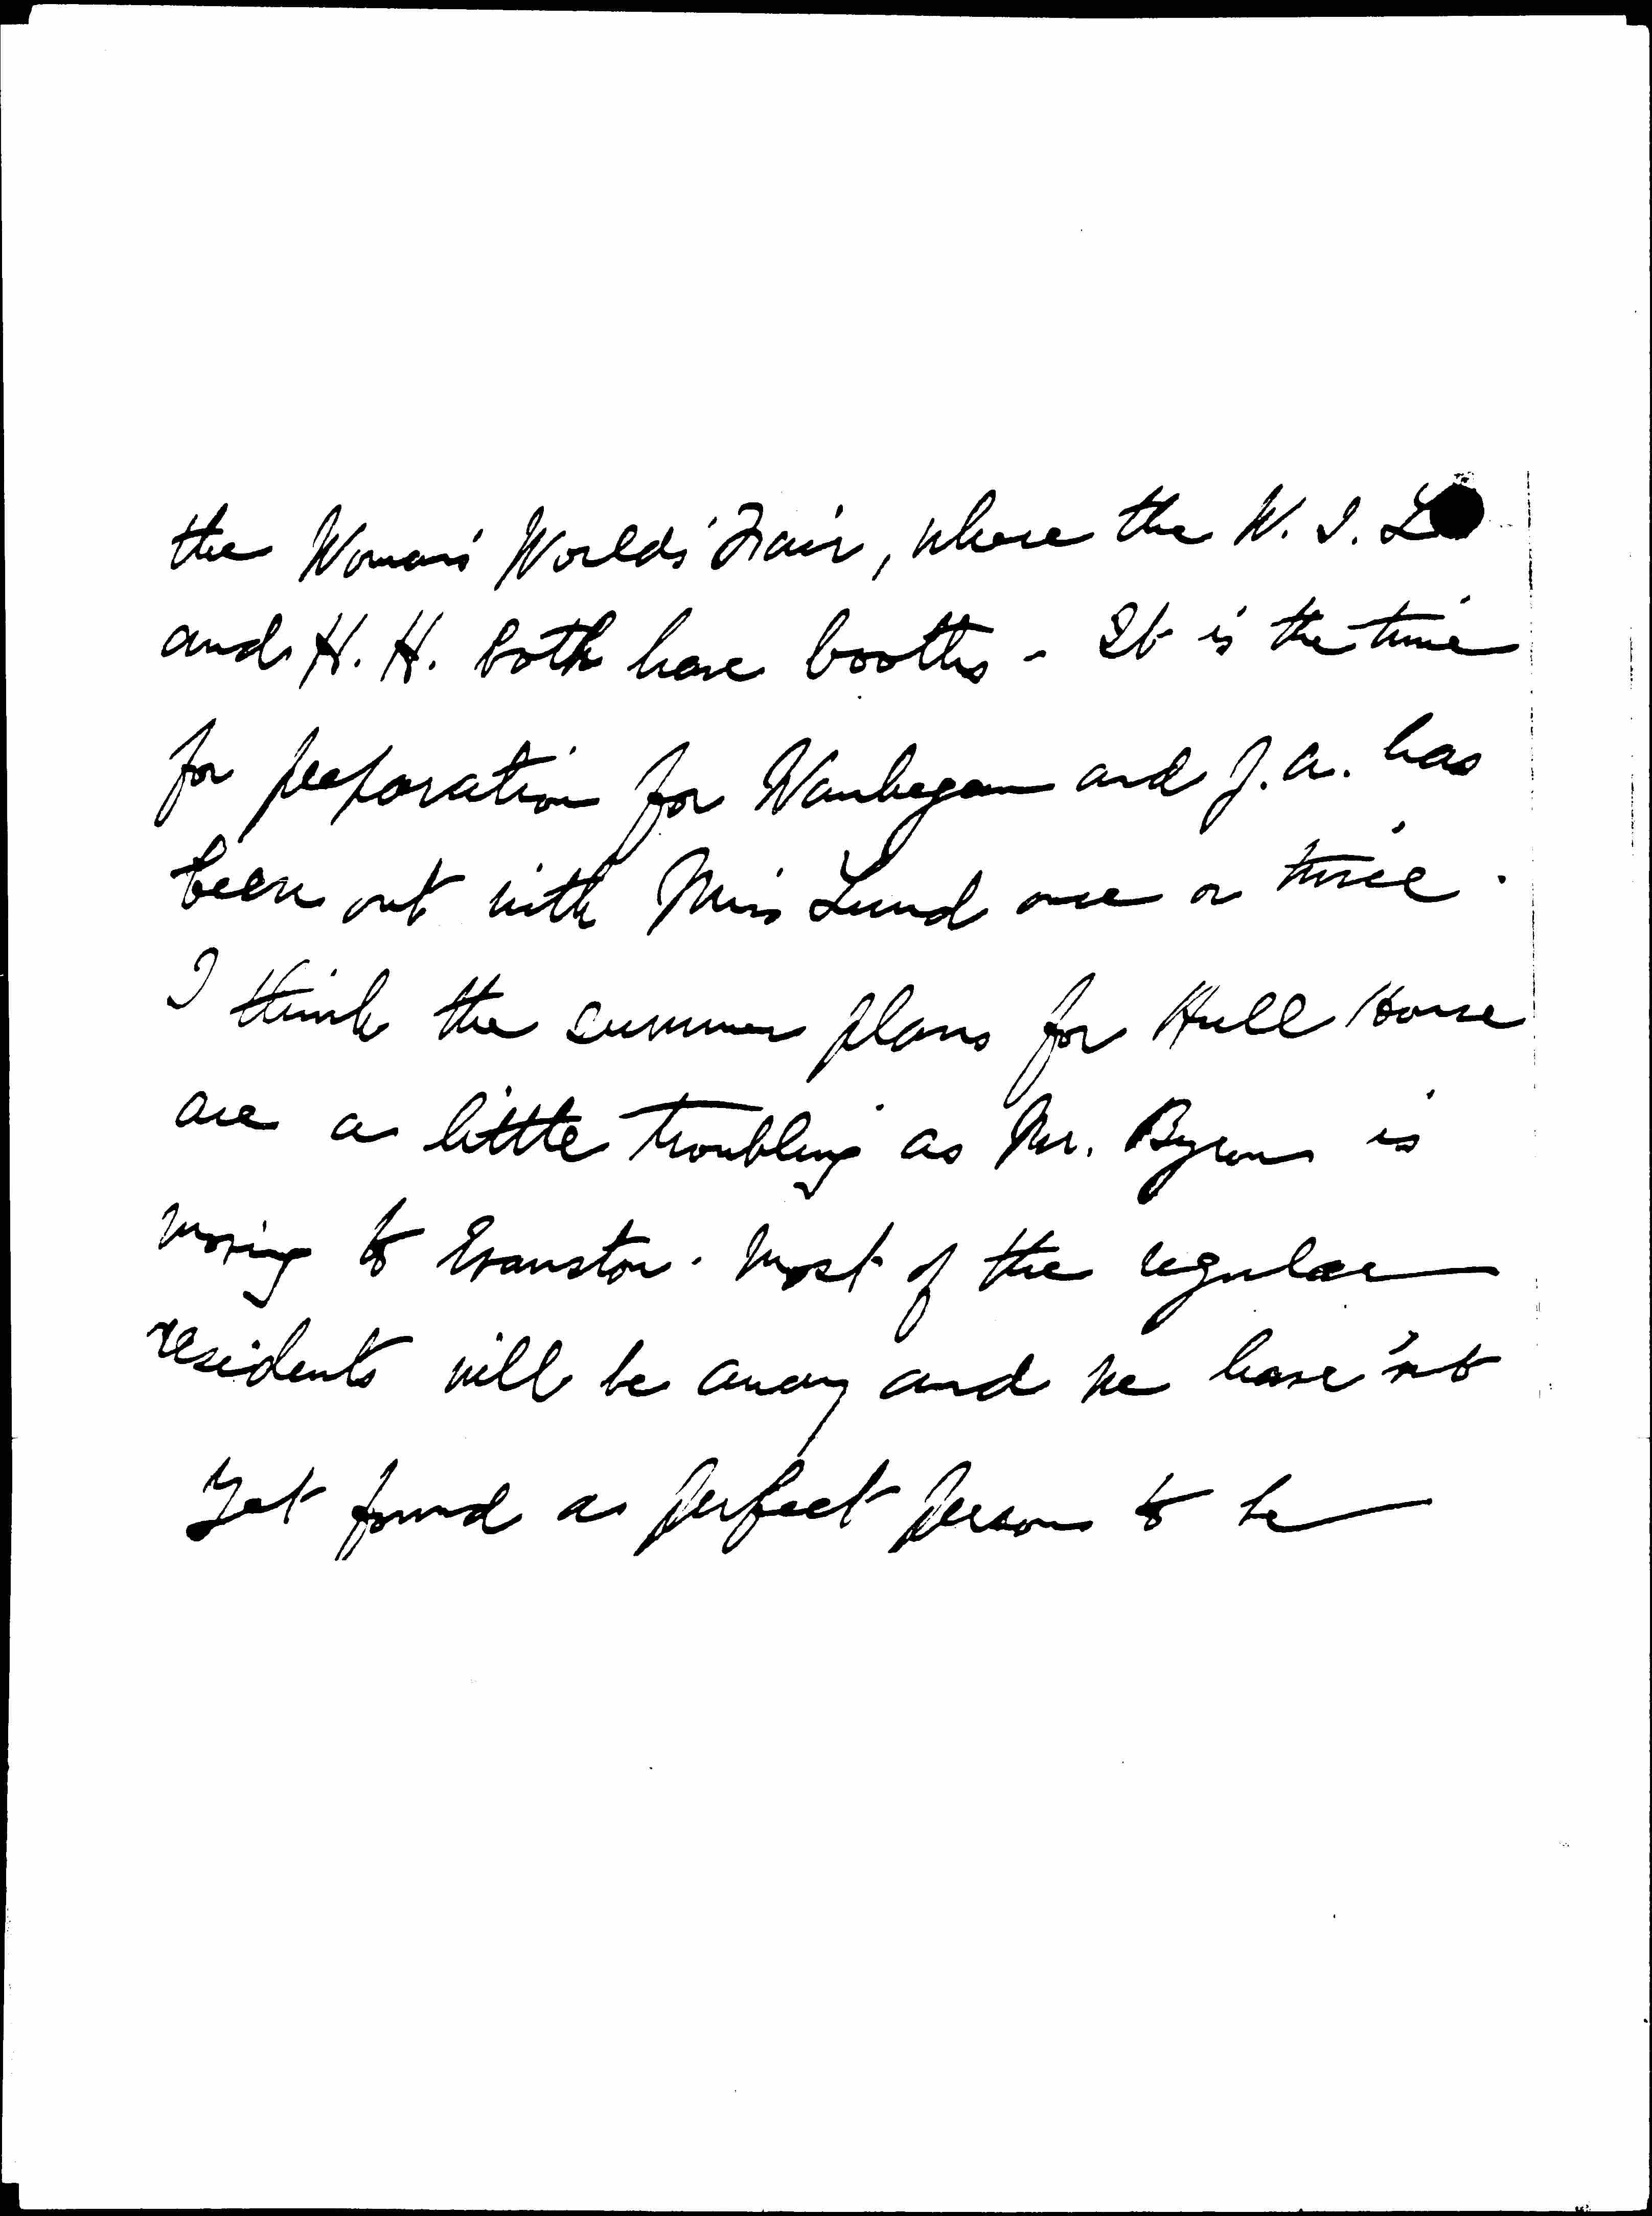 the Woman's World's Fair, where the W. I. L
and H. H. both have booths - It is the time
for preparation for Waukegan and J. A. has
been out with Miss Lund once or twice.
I think the summer plans for Hull House
are a little troubling as Mr. Byron is
moving to Evanston. Most of the regular
residents will be away and we have'nt
yet found a perfect person to be